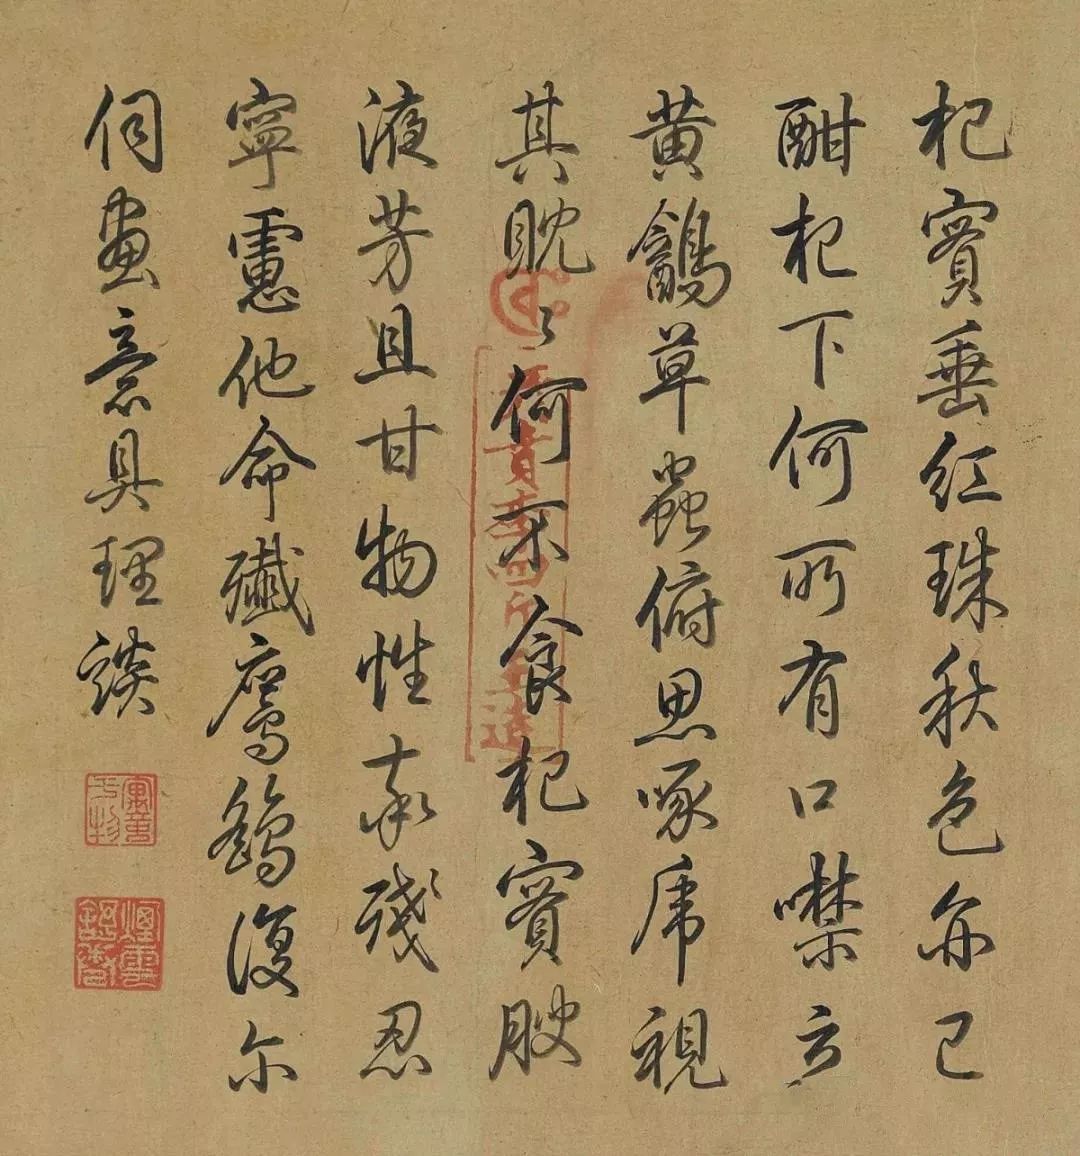 杞實垂紅珠秋色亦已
酣杞下何所有口噤立
黃䳺草蟲俯思啄虎視
其眈〻何不食杞實腴
液芳且甘物性本殘忍
寧慮他命殲鷹鷂復尓
伺畫意具理談